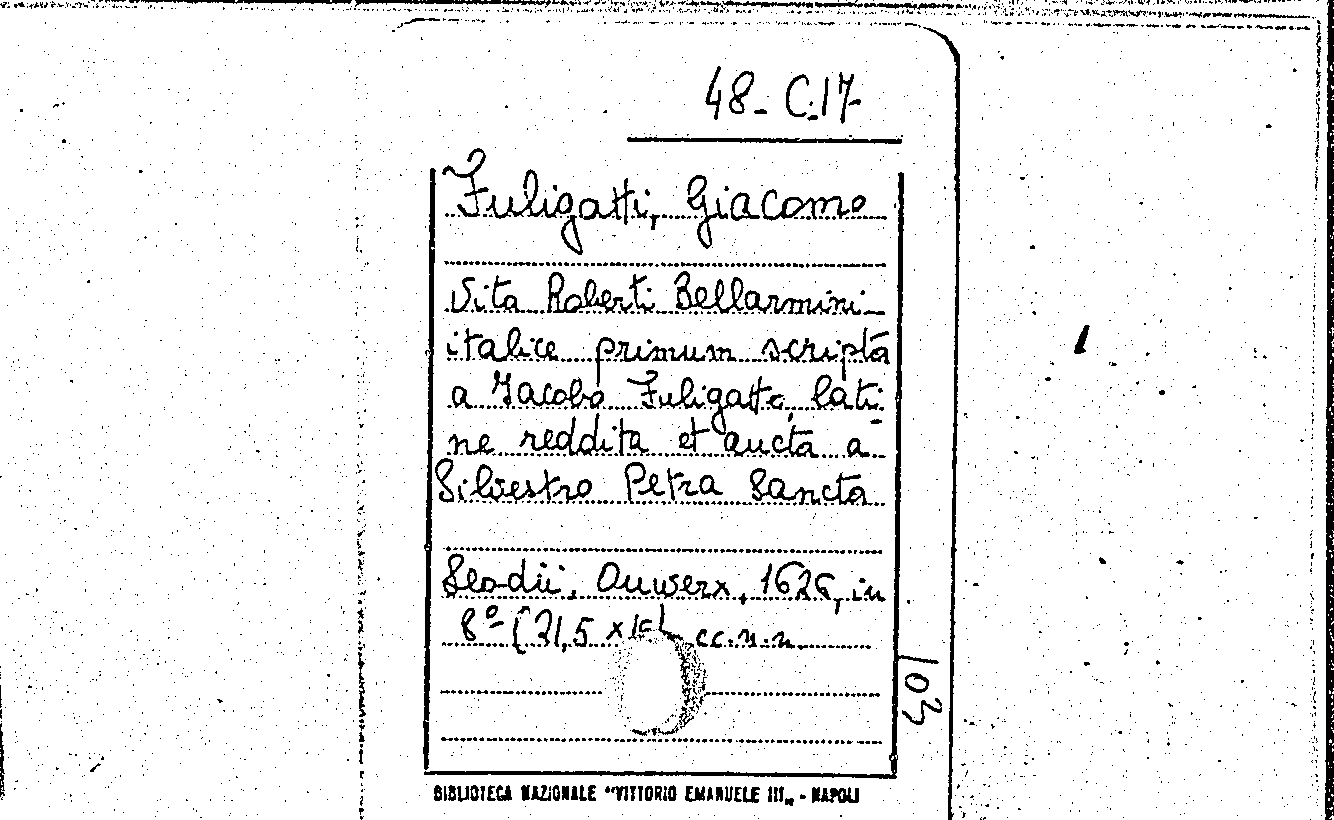 48-C.17-
Fuligatti, Giacomo
Vita Roberti Bellarmini
italice primum scripta
a Jacobo Fuligatto, lati-
ne reddita et aucta a
Silvestro Petra Sancta
Leodii, Ouwerx, 1626, in
8º (21,5 x cc.n.n.
103
BIBLIOTECA NAZIONALE "VITTORIO EMANUELE III„ - NAPOLI